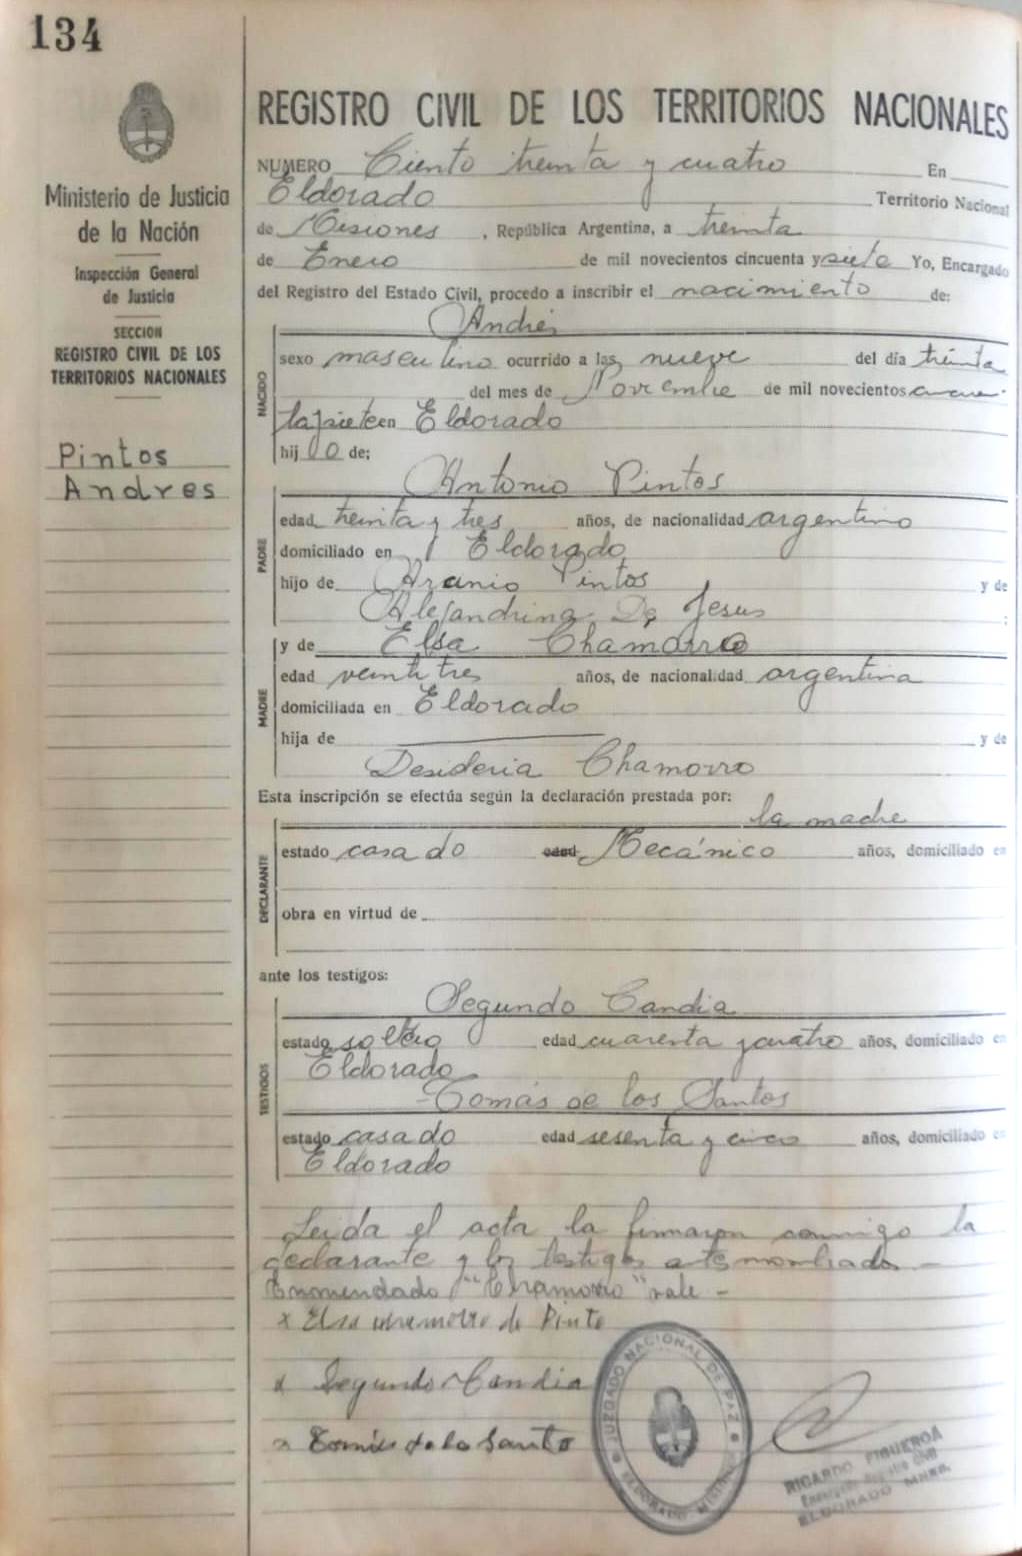 134
Ministerio de Justicia
de la Nación
Inspección General
de Justicia
SECCION
REGISTRO CIVIL DE LOS
TERRITORIOS NACIONALES
Pintos
Andres
REGISTRO CIVIL DE LOS TERRITORIOS NACIONALES
NUMERO Ciento treinta y cuatro En
Eldorado Territorio Nacional
de Misiones , República Argentina, a treinta
de Enero de mil novecientos cincuenta y siete Yo, Encargado
del Registro del Estado Civil, procedo a inscribir el nacimiento de:
Andrés
NACIDO
sexo masculino ocurrido a las nueve del día treinta
del mes de Noviembre de mil novecientos
en Eldorado
hij o de;
Antonio Pintos
PADRE
edad treinta y tres años, de nacionalidad argentino
domiciliado en Eldorado
hijo de Pintos y de
Alejandrina De Jesus :
y de Elsa Chamorro
MADRE
edad veintitres años, de nacionalidad argentina
domiciliada en Eldorado
hija de y de
Desideria Chamorro
Esta inscripción se efectúa según la declaración prestada por:
la madre
DECLARANTE
estado casado edad Mecánico años, domiciliado en
obra en virtud de
ante los testigos:
Segundo Candia
TESTIGOS
estado soltero edad cuarenta y cuatro años, domiciliado en
Eldorado
Tomás de los Santos
estado casado edad sesenta y cinco años, domiciliado en
Eldorado
Leida el acta la firmaron conmigo la
declarante y los testigos
Enmendado "Chamorro" vale -
x Elsa Chamorro de Pinto
x Segundo Candia
x Tomás de lo Santo
JUZGADO NACIONAL DE PAZ
ELDORADO - MISIONES
RICARDO FIGUEROA
Encargado Registro Civil
ELDORADO MNES.